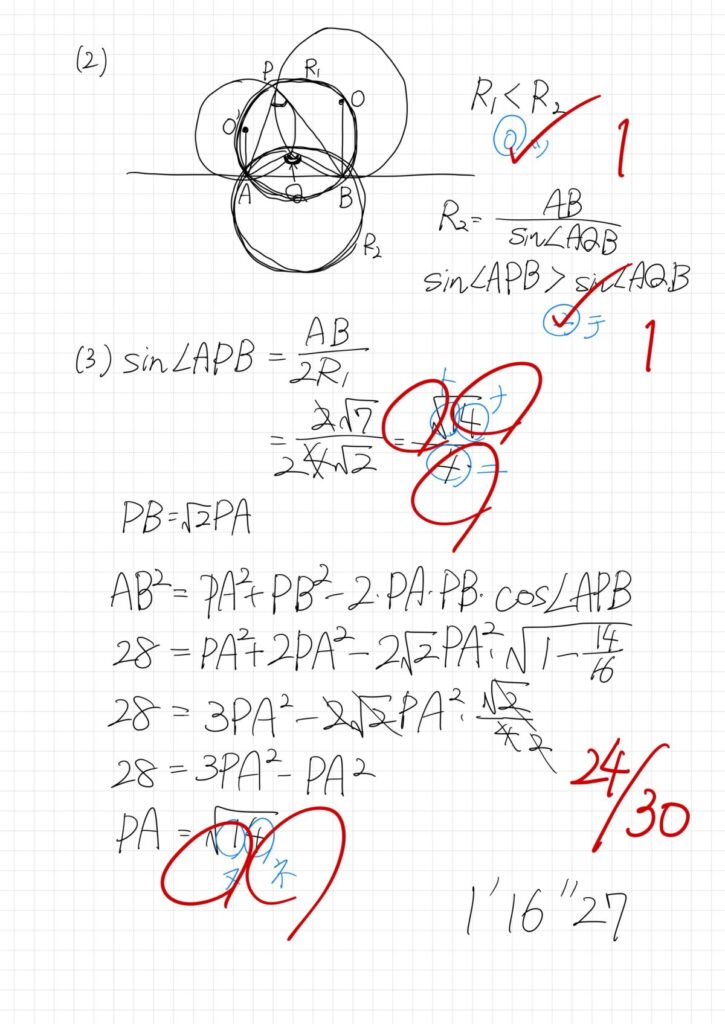 (2)
P R₁
O' O
A Q B
R₂
R₁ < R₂
0 ツ
1
R₂ = AB / sin∠AQB
sin∠APB > sin∠AQB
テ
1
(3) sin∠APB = AB / 2R₁
= 2√7 / 2·4√2 = √14 / 4
ト ナ
ニ
PB = √2PA
AB² = PA² + PB² - 2·PA·PB·cos∠APB
28 = PA² + 2PA² - 2√2PA²·√(1 - 14/16)
28 = 3PA² - 2√2PA²·√2/4 2
28 = 3PA² - PA²
PA = √14
ヌ ネ
24/30
1′16″27